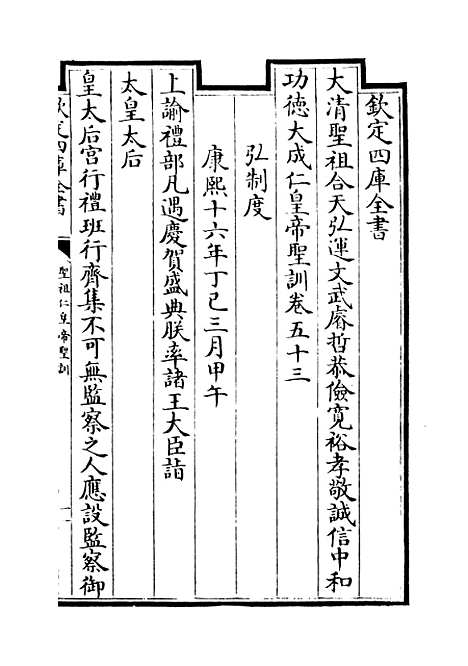 欽定四庫全書
大清聖祖合天弘運文武睿哲恭儉寛裕孝敬誠信中和
功德大成仁皇帝聖訓卷五十三
弘制度
康熙十六年丁巳三月甲午
上諭禮部凡遇慶賀盛典朕率諸王大臣詣
太皇太后
皇太后宫行禮班行齊集不可無監察之人應設監察御
欽定四庫全書
聖祖仁皇帝聖訓
一